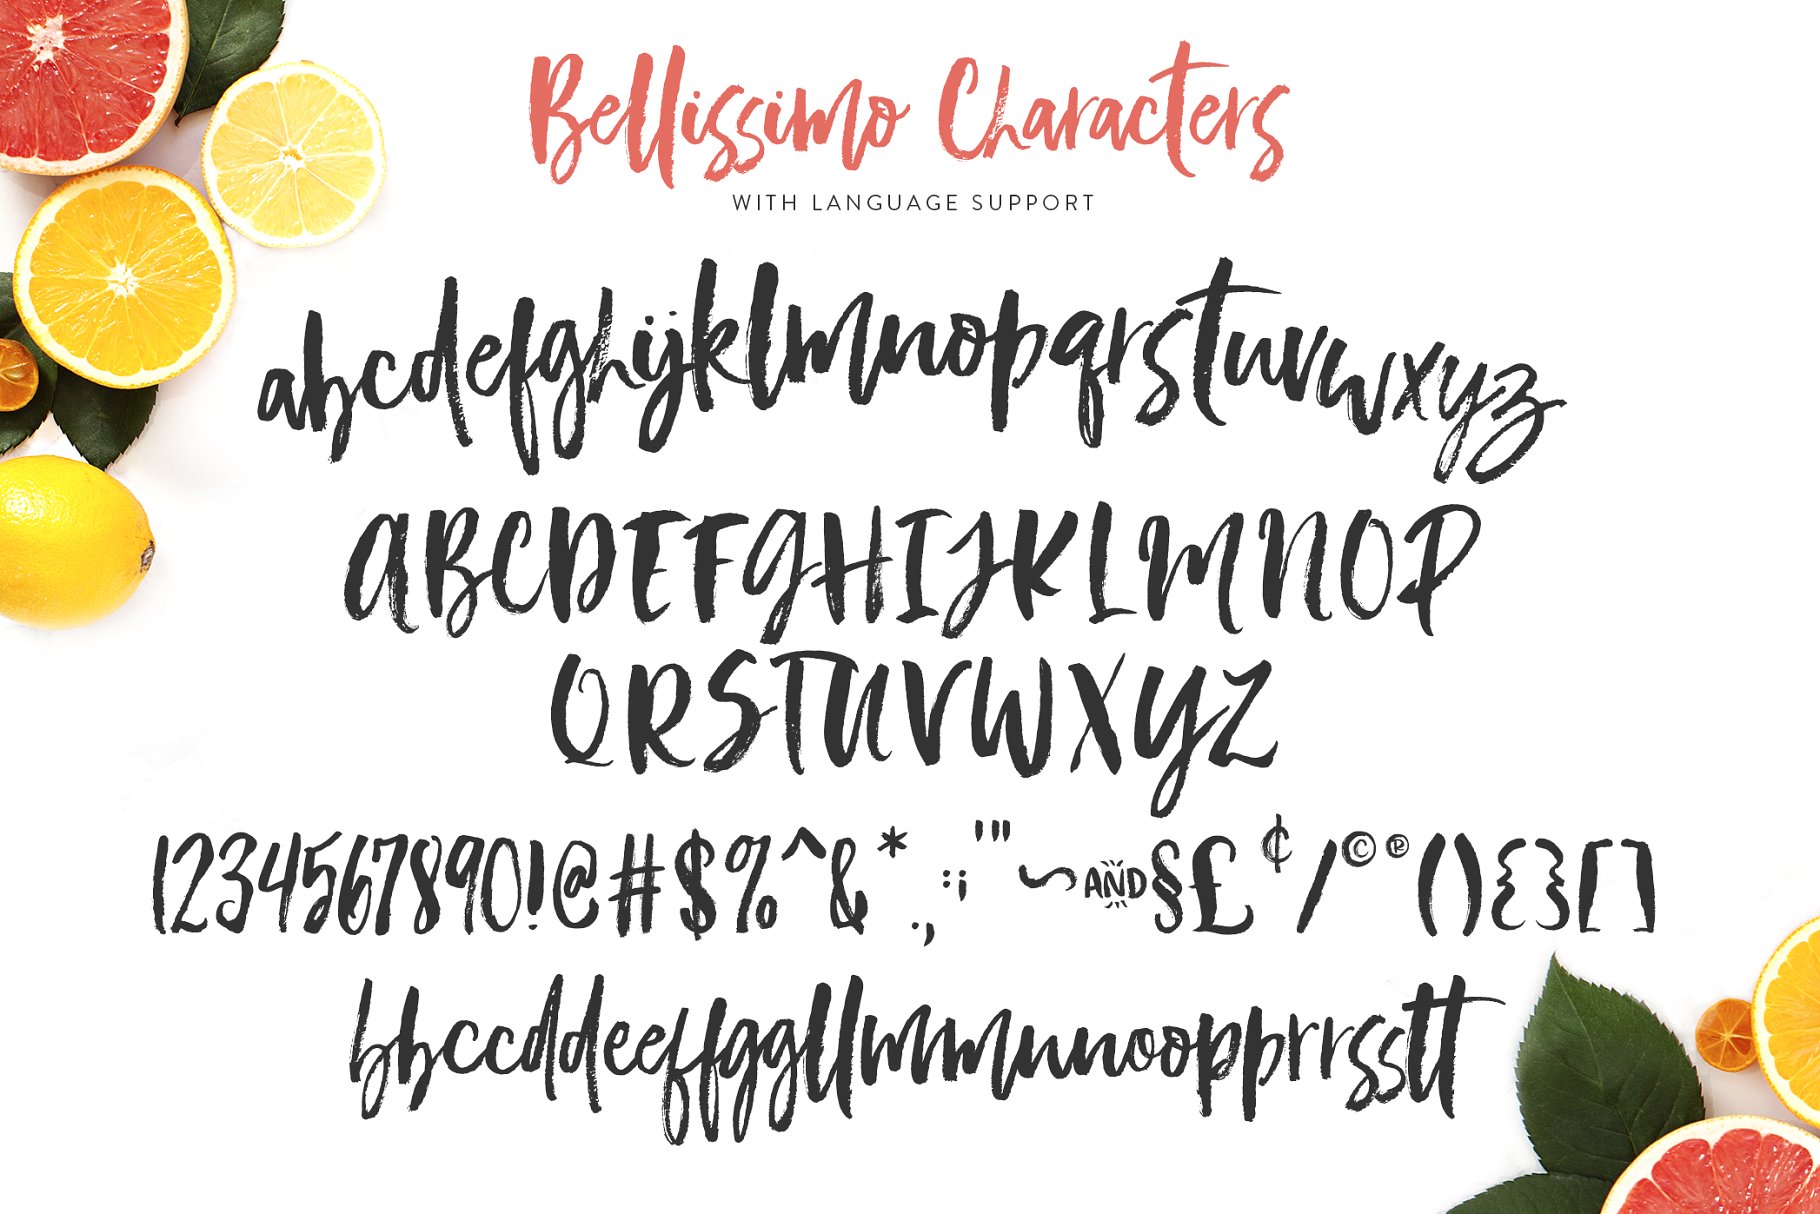 Bellissimo Characters
WITH LANGUAGE SUPPORT
abcdefghijklmnopqrstuvwxyz
ABCDEFGHIJKLMNOP
QRSTUVWXYZ
1234567890!@#$%^&*.,:;'"~AND§£¢/©®(){}[]
bbccddeeffggllmmmnnoopprrsstt